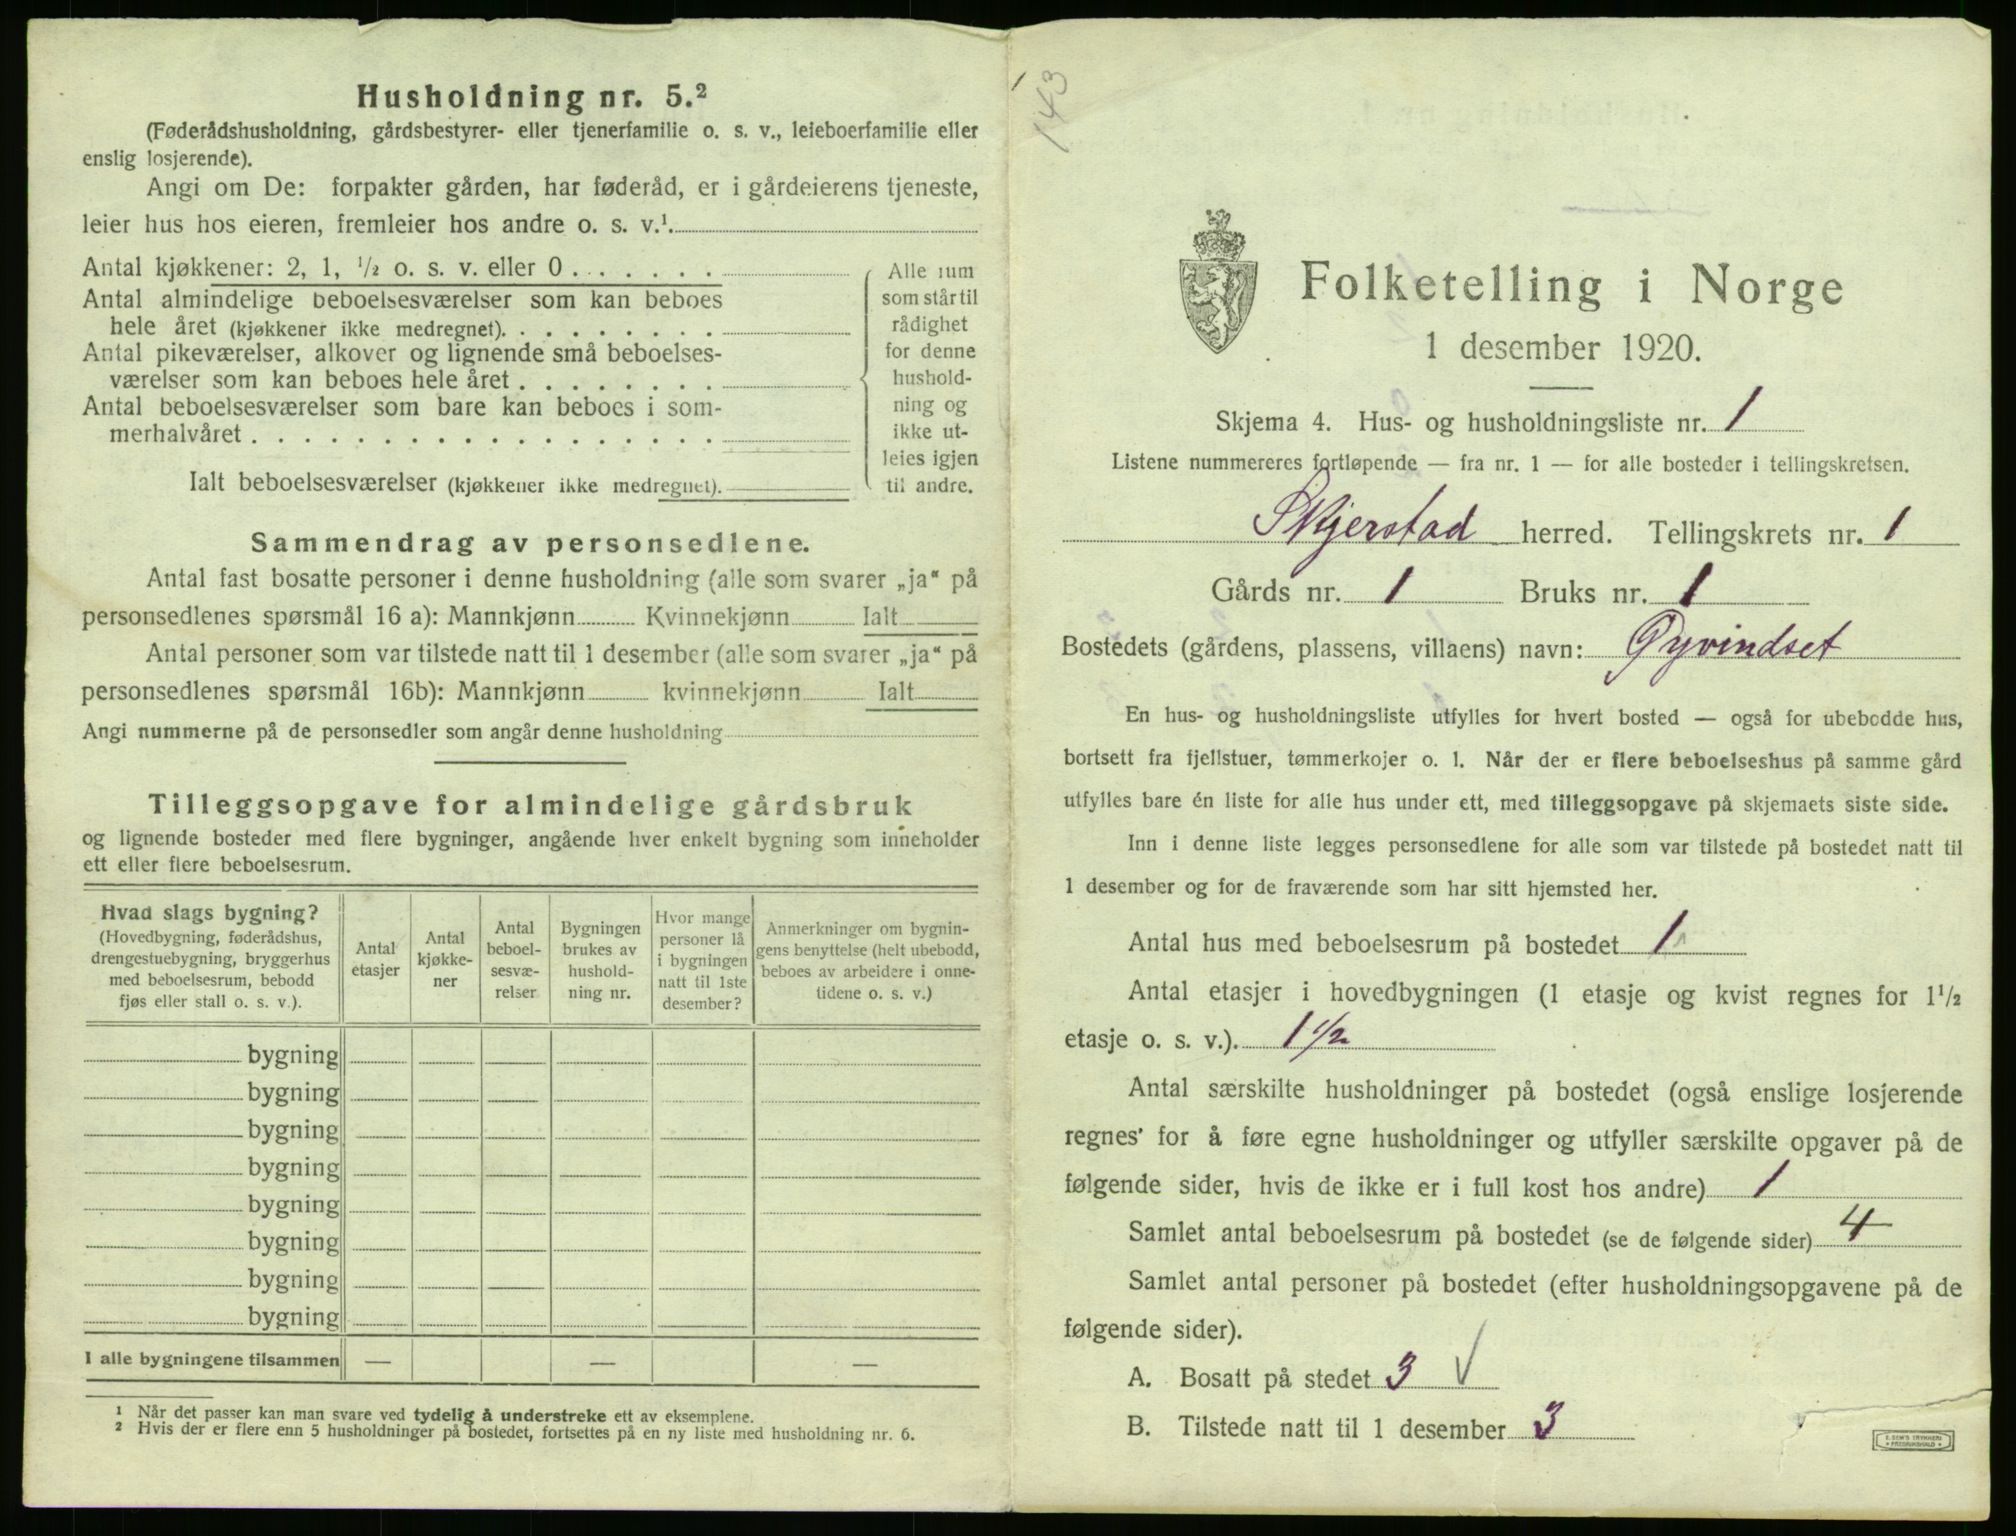 Husholdning nr. 5.²
(Føderådshusholdning, gårdsbestyrer- eller tjenerfamilie o. s. v., leieboerfamilie eller
enslig losjerende).
Angi om De: forpakter gården, har føderåd, er i gårdeierens tjeneste,
leier hus hos eieren, fremleier hos andre o. s. v.¹.
Antal kjøkkener: 2, 1, ½ o. s. v. eller 0 . . . . . .
Antal almindelige beboelsesværelser som kan beboes
hele året (kjøkkener ikke medregnet). . . . . . . . .
Antal pikeværelser, alkover og lignende små beboelses-
værelser som kan beboes hele året . . . . . . . .
Antal beboelsesværelser som bare kan beboes i som-
merhalvåret . . . . . . . . . . . . . . . . . .
Ialt beboelsesværelser (kjøkkener ikke medregnet).
Alle rum
som står til
rådighet
for denne
hushold-
ning og
ikke ut-
leies igjen
til andre.
Sammendrag av personsedlene.
Antal fast bosatte personer i denne husholdning (alle som svarer „ja“ på
personsedlenes spørsmål 16 a): Mannkjønn Kvinnekjønn Ialt
Antal personer som var tilstede natt til 1 desember (alle som svarer „ja“ på
personsedlenes spørsmål 16b): Mannkjønn kvinnekjønn Ialt
Angi nummerne på de personsedler som angår denne husholdning
Tilleggsopgave for almindelige gårdsbruk
og lignende bosteder med flere bygninger, angående hver enkelt bygning som inneholder
ett eller flere beboelsesrum.
Hvad slags bygning?
(Hovedbygning, føderådshus,
drengestuebygning, bryggerhus
med beboelsesrum, bebodd
fjøs eller stall o. s. v.).
Antal
etasjer
Antal
kjøkke-
ner
Antal
beboel-
sesvæ-
relser
Bygningen
brukes av
hushold-
ning nr.
Hvor mange
personer lå
i bygningen
natt til 1ste
desember?
Anmerkninger om bygnin-
gens benyttelse (helt ubebodd,
beboes av arbeidere i onne-
tidene o. s. v.)
bygning
bygning
bygning
bygning
bygning
bygning
bygning
bygning
I alle bygningene tilsammen — — —
¹ Når det passer kan man svare ved tydelig å understreke ett av eksemplene.
² Hvis der er flere enn 5 husholdninger på bostedet, fortsettes på en ny liste med husholdning nr. 6.
143
Folketelling i Norge
1 desember 1920.
Skjema 4. Hus- og husholdningsliste nr. 1
Listene nummereres fortløpende — fra nr. 1 — for alle bosteder i tellingskretsen.
Skjerstad herred. Tellingskrets nr. 1
Gårds nr. 1 Bruks nr. 1
Bostedets (gårdens, plassens, villaens) navn: Øyvindset
En hus- og husholdningsliste utfylles for hvert bosted — også for ubebodde hus,
bortsett fra fjellstuer, tømmerkojer o. l. Når der er flere beboelseshus på samme gård
utfylles bare én liste for alle hus under ett, med tilleggsopgave på skjemaets siste side.
Inn i denne liste legges personsedlene for alle som var tilstede på bostedet natt til
1 desember og for de fraværende som har sitt hjemsted her.
Antal hus med beboelsesrum på bostedet 1
Antal etasjer i hovedbygningen (1 etasje og kvist regnes for 1½
etasje o. s. v.). 1 ½
Antal særskilte husholdninger på bostedet (også enslige losjerende
regnes for å føre egne husholdninger og utfyller særskilte opgaver på de
følgende sider, hvis de ikke er i full kost hos andre) 1
Samlet antal beboelsesrum på bostedet (se de følgende sider) 4
Samlet antal personer på bostedet (efter husholdningsopgavene på de
følgende sider).
A. Bosatt på stedet 3 √
B. Tilstede natt til 1 desember 3
E. SEM'S TRYKKERI
• FREDRIKSHALD •